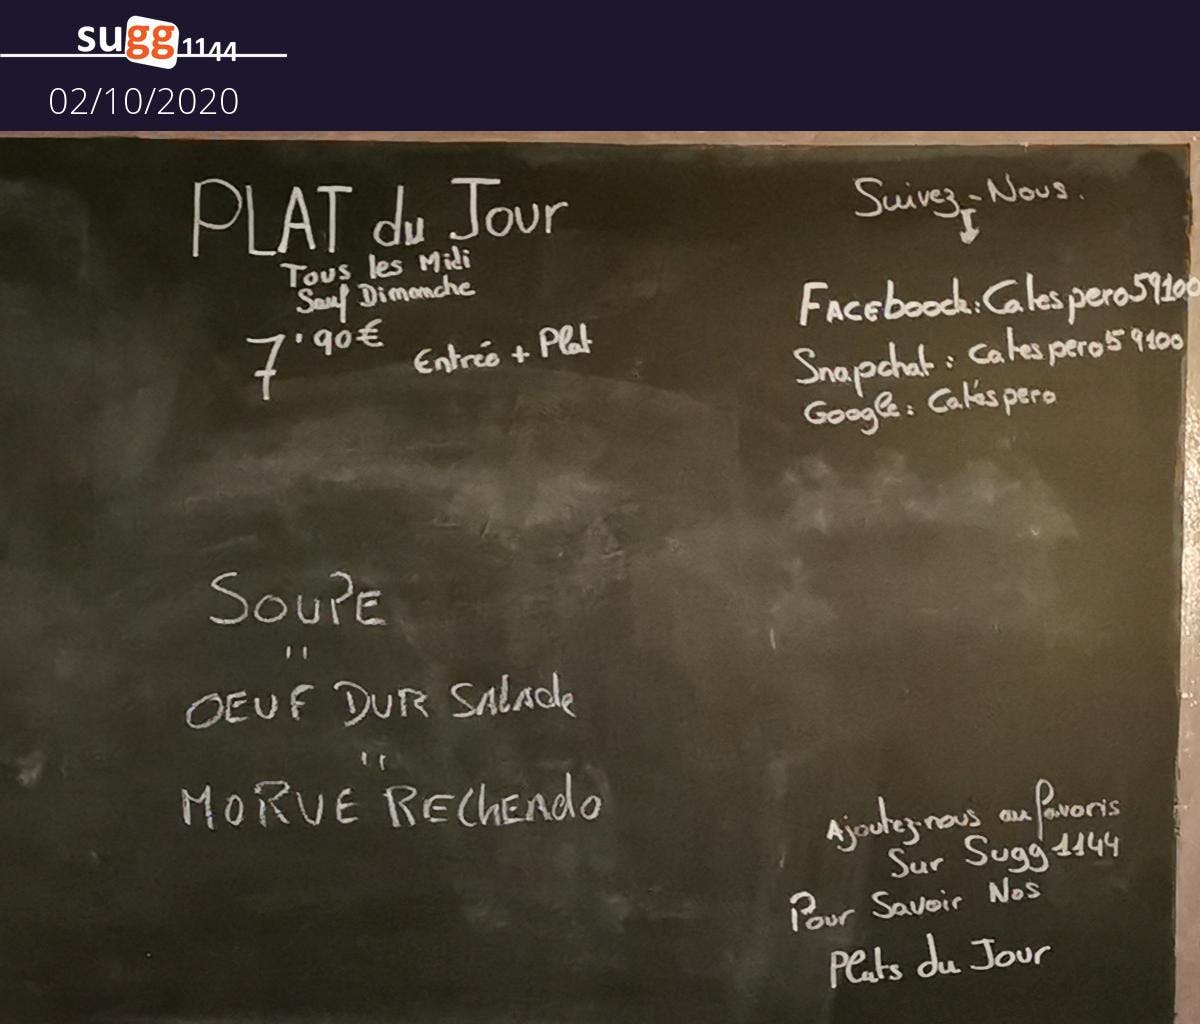 sugg1144
02/10/2020
PLAT du Jour
Tous les Midi
Sauf Dimanche
7'90€
Entrée + Plat
Suivez-Nous.
FACEboock: Catespero59100
Snapchat: Catespero59100
Google: Catéspero
SOUPE
"
OEUF DUR SALAde
"
MORUE REChENdo
Ajoutez-nous au favoris
Sur Sugg1144
Pour Savoir Nos
Plats du Jour